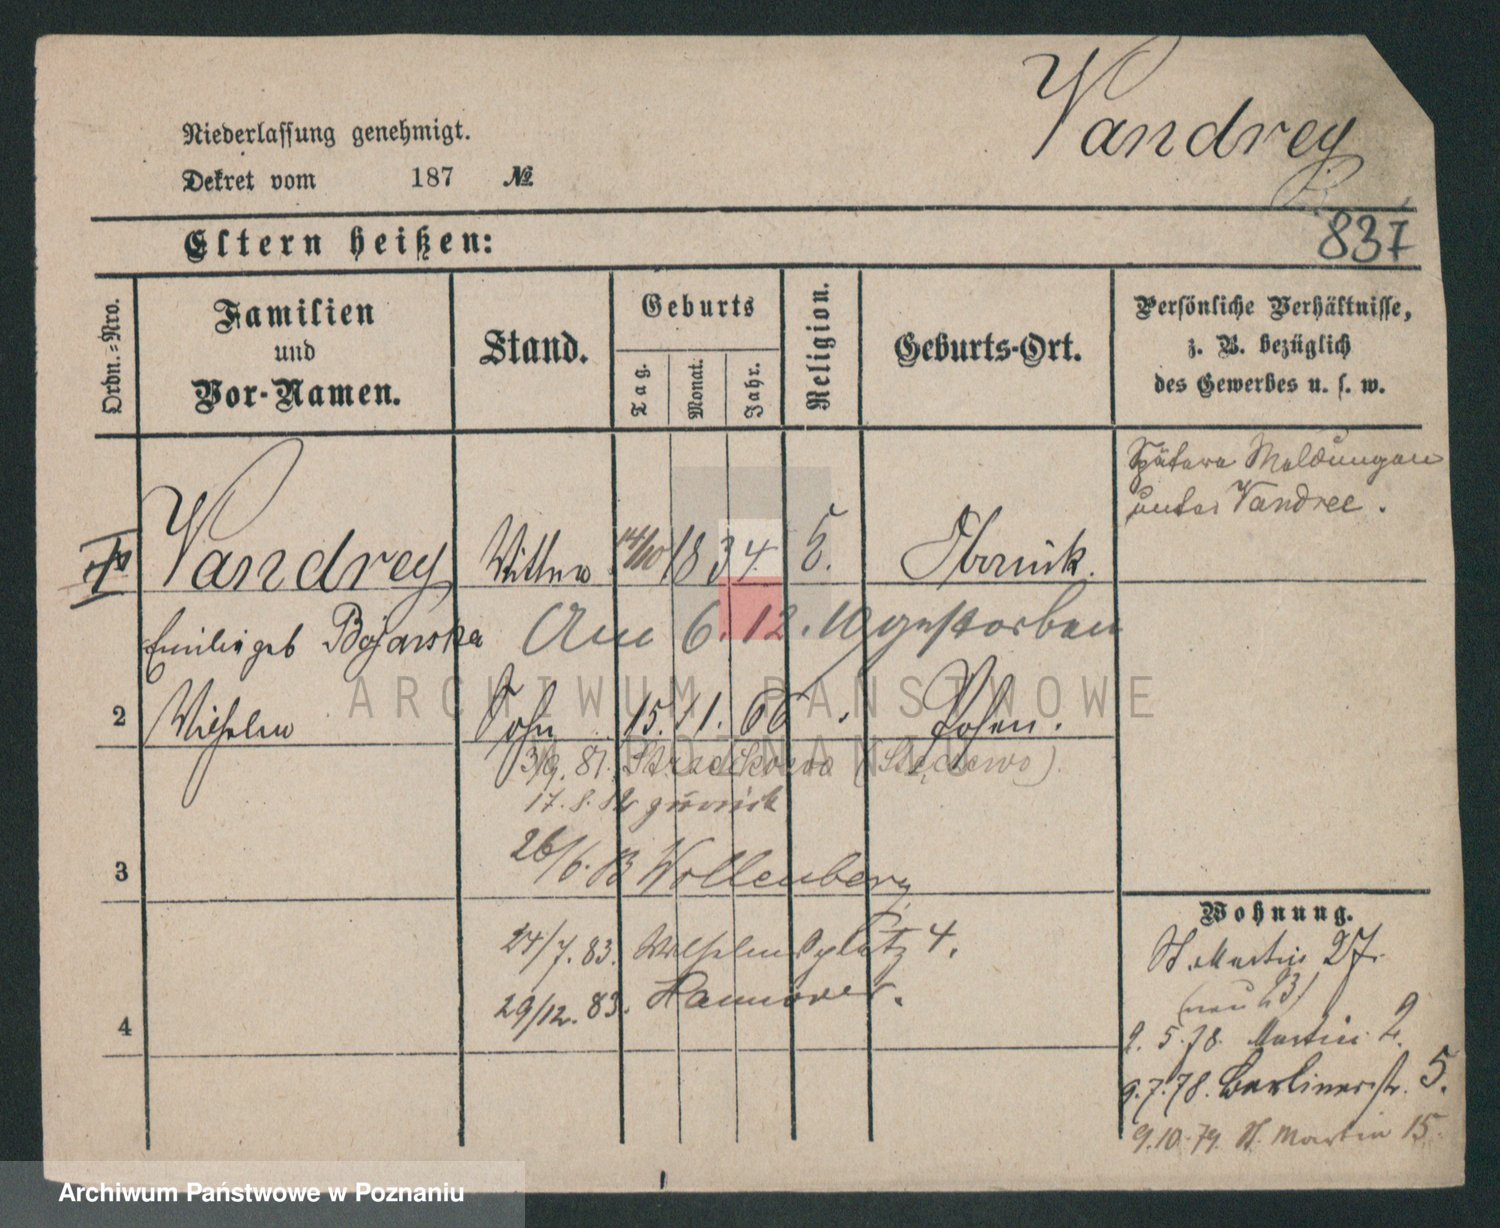 Vandrey
Niederlassung genehmigt.
Dekret vom 187 №
Eltern heißen:
837
Ordn.-Nro.
Familien
und
Vor-Namen.
Stand.
Geburts
Tag.
Monat.
Jahr.
Religion.
Geburts-Ort.
Persönliche Verhältnisse,
z. B. bezüglich
des Gewerbes u. s. w.
Spätere Meldungen
unter Vandree.
Vandrey Wittwe 14/10 1834. Obornik.
Emilie geb Bojarska Am 6.12.10 gestorben
2 Wilhelm Sohn 15. 11. 66 Posen.
3/9. 81. (Stęszewo).
17. 8. 82 zurück
3
26/6. 83 Wollenberg
Wohnung.
24/7. 83. Wilhelmsplatz 4.
St. Martin 27.
(neu 23)
29/12. 83. Hannover.
4
2. 5. 78. Martin 2.
9. 7. 78. Berlinerstr. 5.
9. 10. 79. St. Martin 15.
ARCHIWUM PAŃSTWOWE
W POZNANIU
Archiwum Państwowe w Poznaniu